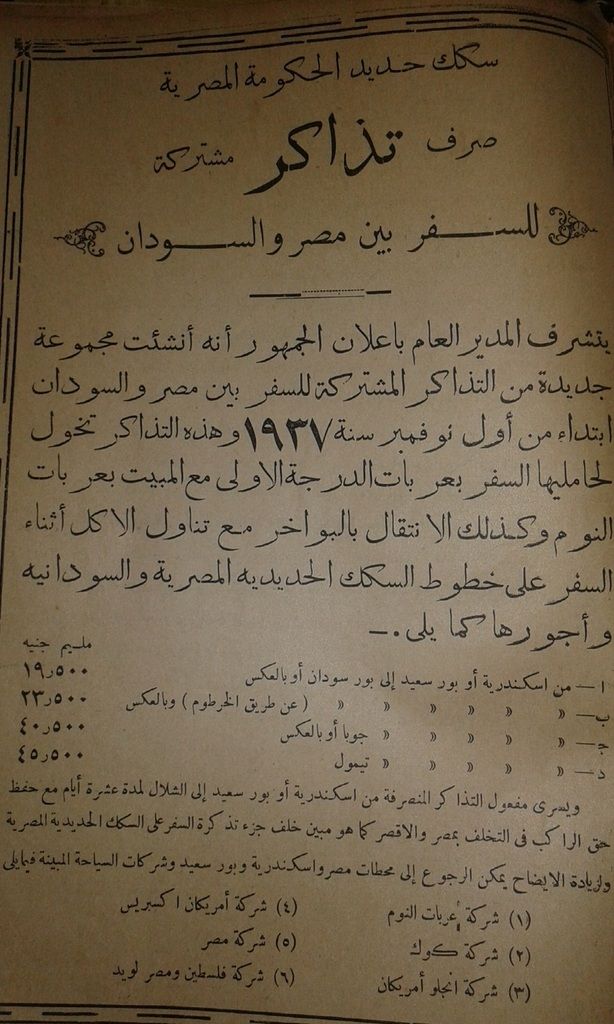 سكك حديد الحكومة المصرية
صرف تذاكر مشتركة
للسفر بين مصر والسودان
يتشرف المدير العام باعلان الجمهور أنه أنشئت مجموعة
جديدة من التذاكر المشتركة للسفر بين مصر والسودان
ابتداء من أول نوفمبر سنة ١٩٣٧ وهذه التذاكر تخول
لحامليها السفر بعربات الدرجة الاولى مع المبيت بعربات
النوم وكذلك الانتقال بالبواخر مع تناول الاكل أثناء
السفر على خطوط السكك الحديديه المصرية والسودانيه
وأجورها كما يلى .—
مليم جنيه
ا — من اسكندرية أو بور سعيد إلى بور سودان أو بالعكس ١٩٫٥٠٠
ب — » » » » » » (عن طريق الخرطوم) وبالعكس ٢٣٫٥٠٠
ج — » » » » » جوبا أو بالعكس ٤٠٫٥٠٠
د — » » » » » تيمول ٤٥٫٥٠٠
ويسرى مفعول التذاكر المنصرفة من اسكندرية أو بور سعيد إلى الشلال لمدة عشرة أيام مع حفظ
حق الراكب فى التخلف بمصر والاقصر كما هو مبين خلف جزء تذكرة السفر على السكك الحديدية المصرية
ولزيادة الايضاح يمكن الرجوع إلى محطات مصر واسكندرية وبور سعيد وشركات السياحة المبينة فيما يلى
(١) شركة عربات النوم (٤) شركة أمريكان اكسبريس
(٢) شركة كوك (٥) شركة مصر
(٣) شركة انجلو أمريكان (٦) شركة فلسطين ومصر لويد